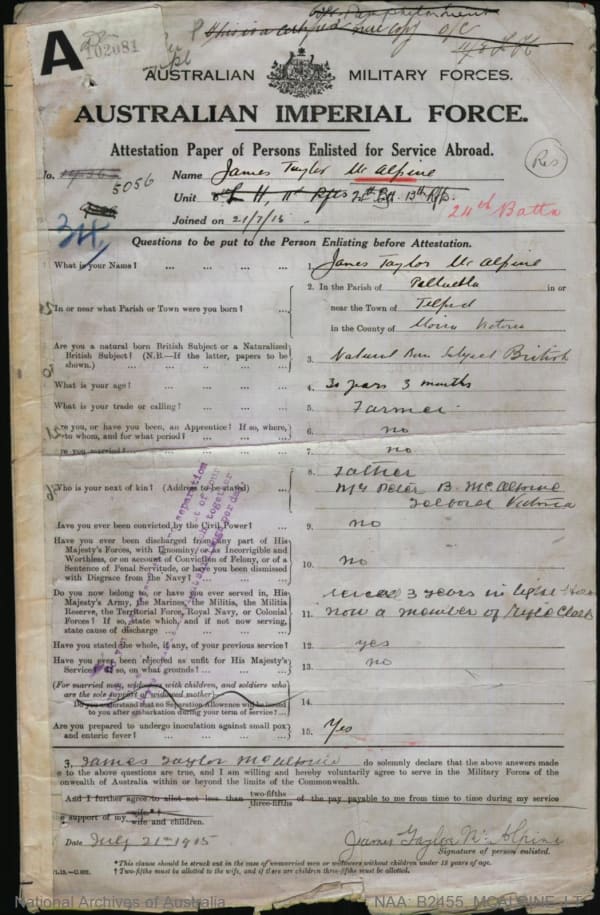 A
102081
This is a certified true copy O/C
AUSTRALIAN MILITARY FORCES.
AUSTRALIAN IMPERIAL FORCE.
Attestation Paper of Persons Enlisted for Service Abroad.
No. 5056 Name James Taylor McAlpine
Unit 13th Rfts 24th Battn
Joined on 21/7/15
34
Questions to be put to the Person Enlisting before Attestation.
What is your Name? ... ... ... ... 1. James Taylor McAlpine
In or near what Parish or Town were you born? ... 2. In the Parish of in or
near the Town of
in the County of Moira Victoria
Are you a natural born British Subject or a Naturalized
British Subject? (N.B.—If the latter, papers to be
shown.) 3. Natural Born Subject British
What is your age? ... ... ... ... 4. 30 years 3 months
What is your trade or calling? ... ... ... 5. Farmer
Are you, or have you been, an Apprentice? If so, where,
to whom, and for what period? ... ... ... 6. no
Are you married? ... 7. no
Who is your next of kin? (Address to be stated) 8. Father
Mr Peter B. McAlpine
Victoria
Have you ever been convicted by the Civil Power? ... 9. no
Have you ever been discharged from any part of His
Majesty's Forces, with Ignominy, or as Incorrigible and
Worthless, or on account of Conviction of Felony, or of a
Sentence of Penal Servitude, or have you been dismissed
with Disgrace from the Navy? ... 10. no
Do you now belong to, or have you ever served in, His
Majesty's Army, the Marines, the Militia, the Militia
Reserve, the Territorial Force, Royal Navy, or Colonial
Forces? If so, state which, and if not now serving,
state cause of discharge 11. served 3 years in Light Horse
now a member of Rifle Club
Have you stated the whole, if any, of your previous service? 12. yes
Have you ever been rejected as unfit for His Majesty's
Service? If so, on what grounds? ... 13. no
(For married men, widowers with children, and soldiers who
are the sole support of widowed mother)
Do you understand that no Separation Allowance will be issued
to you after embarkation during your term of service? ... 14.
Are you prepared to undergo inoculation against small pox
and enteric fever? ... 15. Yes
I, James Taylor McAlpine do solemnly declare that the above answers made
to the above questions are true, and I am willing and hereby voluntarily agree to serve in the Military Forces of the
Commonwealth of Australia within or beyond the limits of the Commonwealth.
And I further agree to allot not less than two-fifths three-fifths of the pay payable to me from time to time during my service
support of my wife wife and children.
Date July 21st 1915 James Taylor McAlpine
Signature of person enlisted.
* This clause should be struck out in the case of unmarried men or widowers without children under 18 years of age.
† Two-fifths must be allotted to the wife, and if there are children three-fifths must be allotted.
National Archives of Australia NAA: B2455, MCALPINE J T